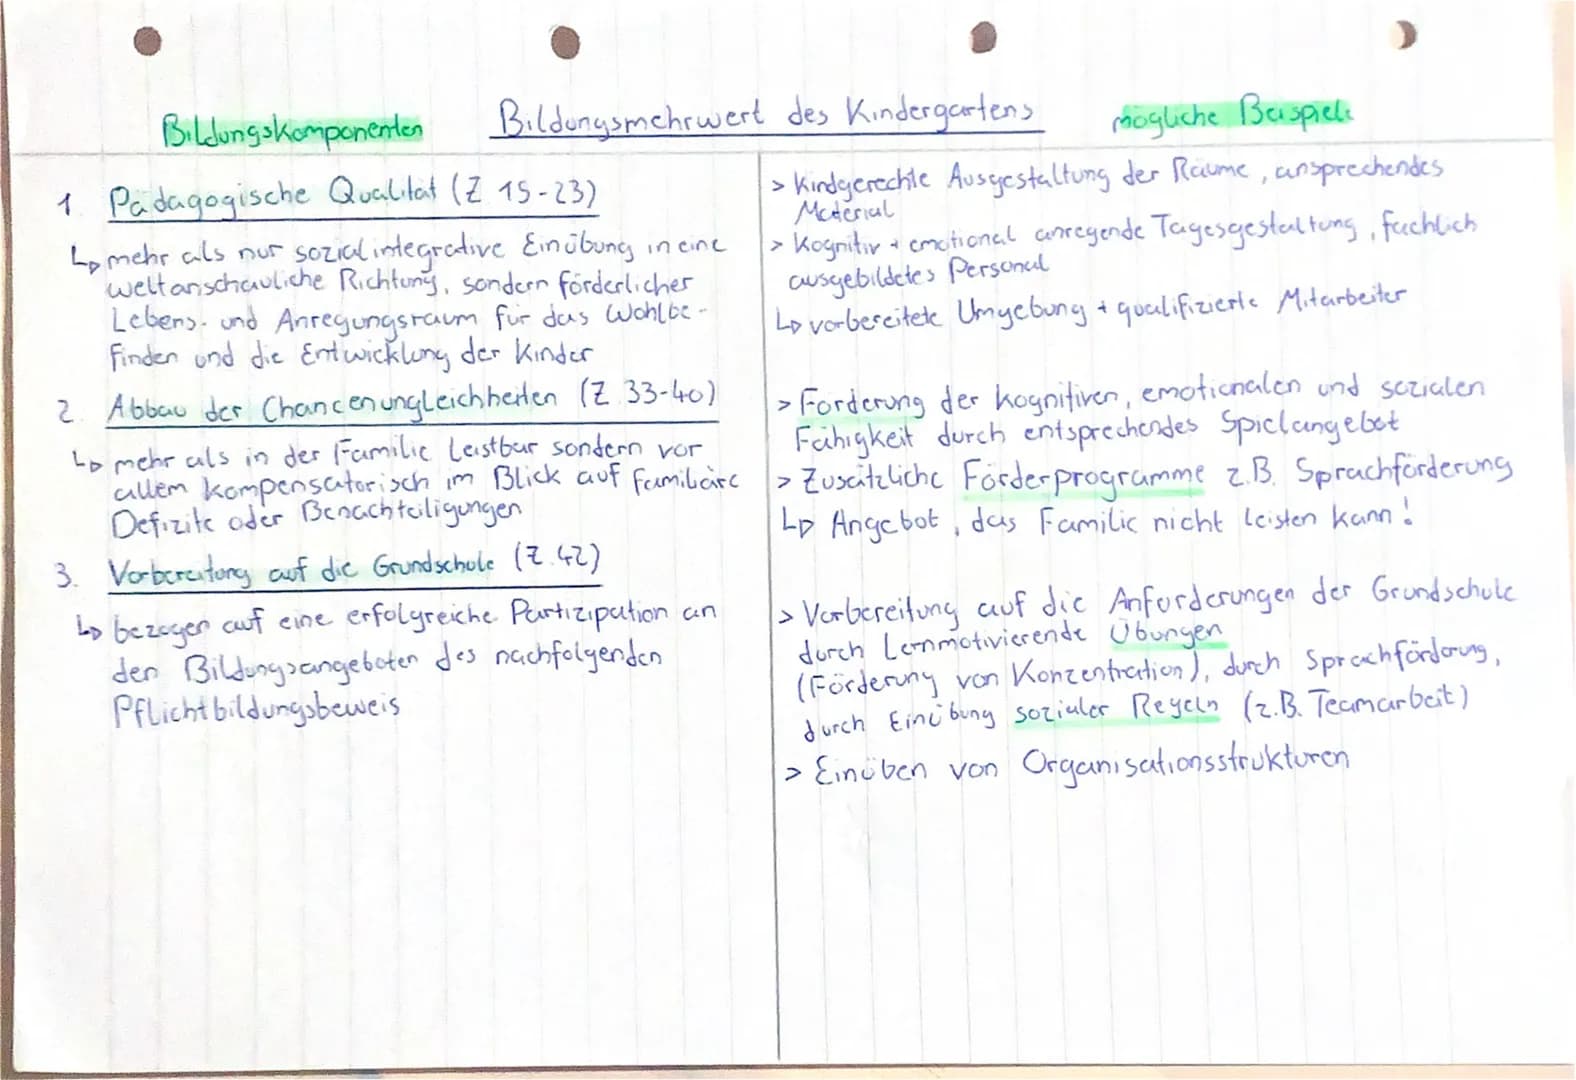 Bildungskomponenten
Bildungsmehrwert des Kindergartens
mögliche Beispiele
1. Pädagogische Qualität (Z 15-23)
↳ mehr als nur sozialintegrative Einübung in eine
weltanschauliche Richtung, sondern förderlicher
Lebens- und Anregungsraum für das Wohlbe-
finden und die Entwicklung der Kinder
2. Abbau der Chancenungleichheiten (Z. 33-40)
↳ mehr als in der Familie leistbar sondern vor
allem kompensatorisch im Blick auf familiäre
Defizite oder Benachteiligungen
3. Vorbereitung auf die Grundschule (Z. 42)
↳ bezogen auf eine erfolgreiche Partizipation an
den Bildungsangeboten des nachfolgenden
Pflichtbildungsbeweis
> Kindgerechte Ausgestaltung der Räume, ansprechendes
Material
> Kognitiv + emotional anregende Tagesgestaltung, fachlich
ausgebildetes Personal
↳ vorbereitete Umgebung + qualifizierte Mitarbeiter
> Förderung der kognitiven, emotionalen und sozialen
Fähigkeit durch entsprechendes Spielangebot
> Zusätzliche Förderprogramme z.B. Sprachförderung
↳ Angebot, das Familie nicht leisten kann!
> Vorbereitung auf die Anforderungen der Grundschule
durch Lernmotivierende Übungen
(Förderung von Konzentration), durch Sprachförderung,
durch Einübung sozialer Regeln (z.B. Teamarbeit)
> Einüben von Organisationsstrukturen